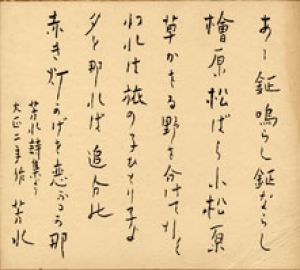 あゝ鉦鳴らし鉦ならし
檜原松ばら小松原
草かをる野を分けて行く
われは旅の子ひとり子
夕と那れば追分の
赤き灯かげを恋ふるか那
芳水詩集より
大正二年作 芳水